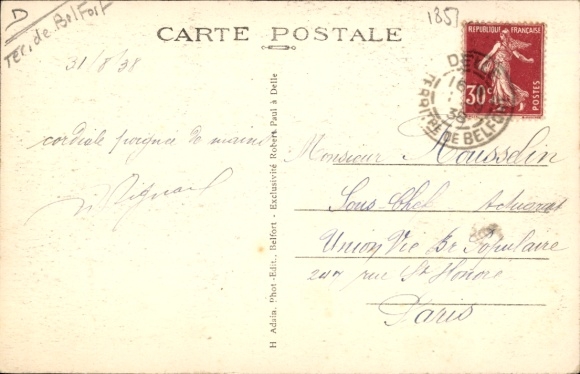 D
Ter. de Belfort
CARTE POSTALE
185
REPUBLIQUE FRANÇAISE
30c
POSTES
TERRITRE DE BELFORT
31/8/38
cordiale poignée de mains
H Adain, Phot-Edit., Belfort - Exclusivité Robert Paul à Delle
Monsieur
Sous-Chef
Union Vie Populaire
rue St Honoré
Paris